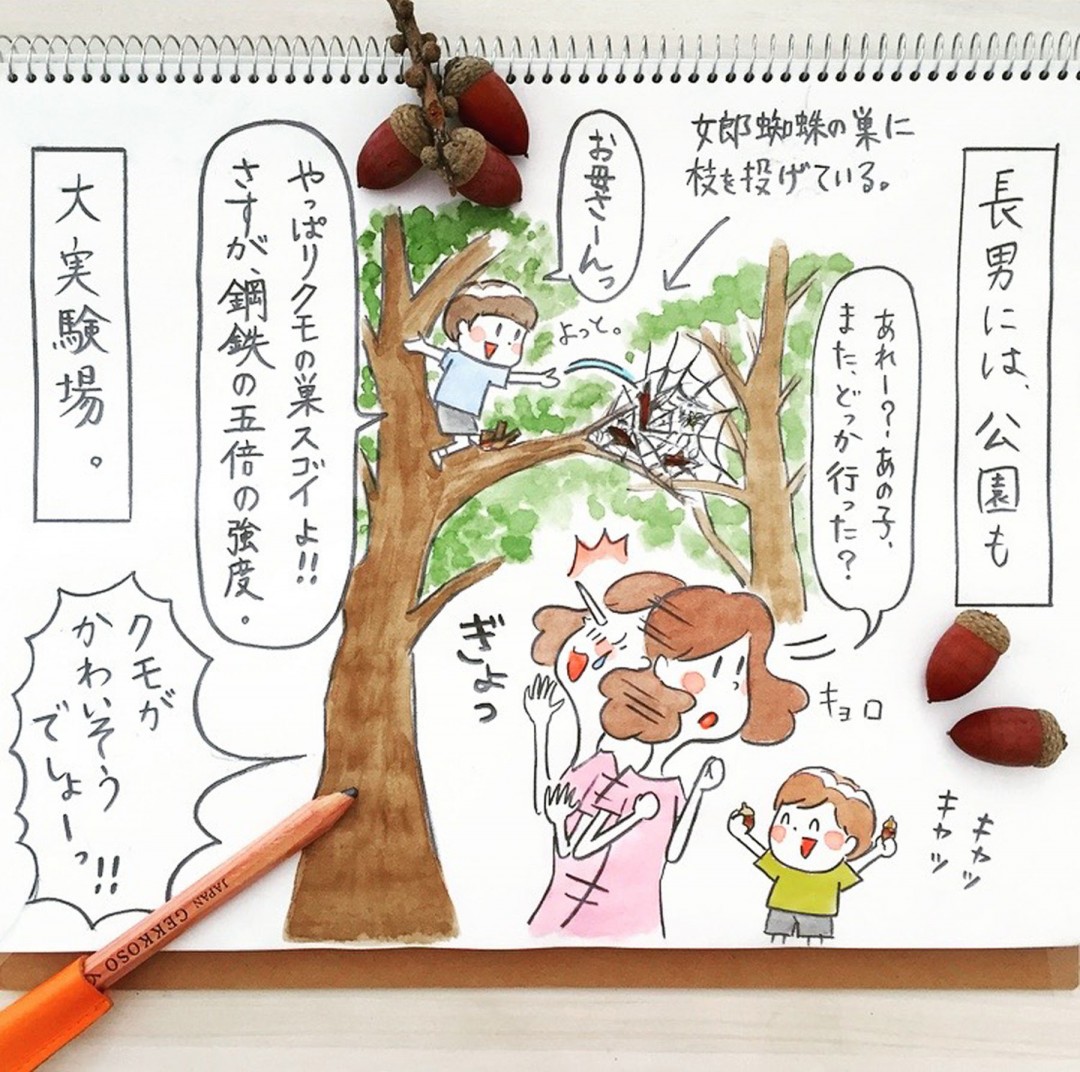 長男には、公園も
女郎蜘蛛の巣に
枝を投げている。
あれー?あの子、
また、どっか行った?
キョロ
お母さーんっ
よっと。
やっぱりクモの巣スゴイよ!!
さすが、鋼鉄の五倍の強度。
ぎょっ
クモが
かわいそう
でしょーっ!!
キャッ
キャッ
大実験場。
JAPAN GEKKOSO